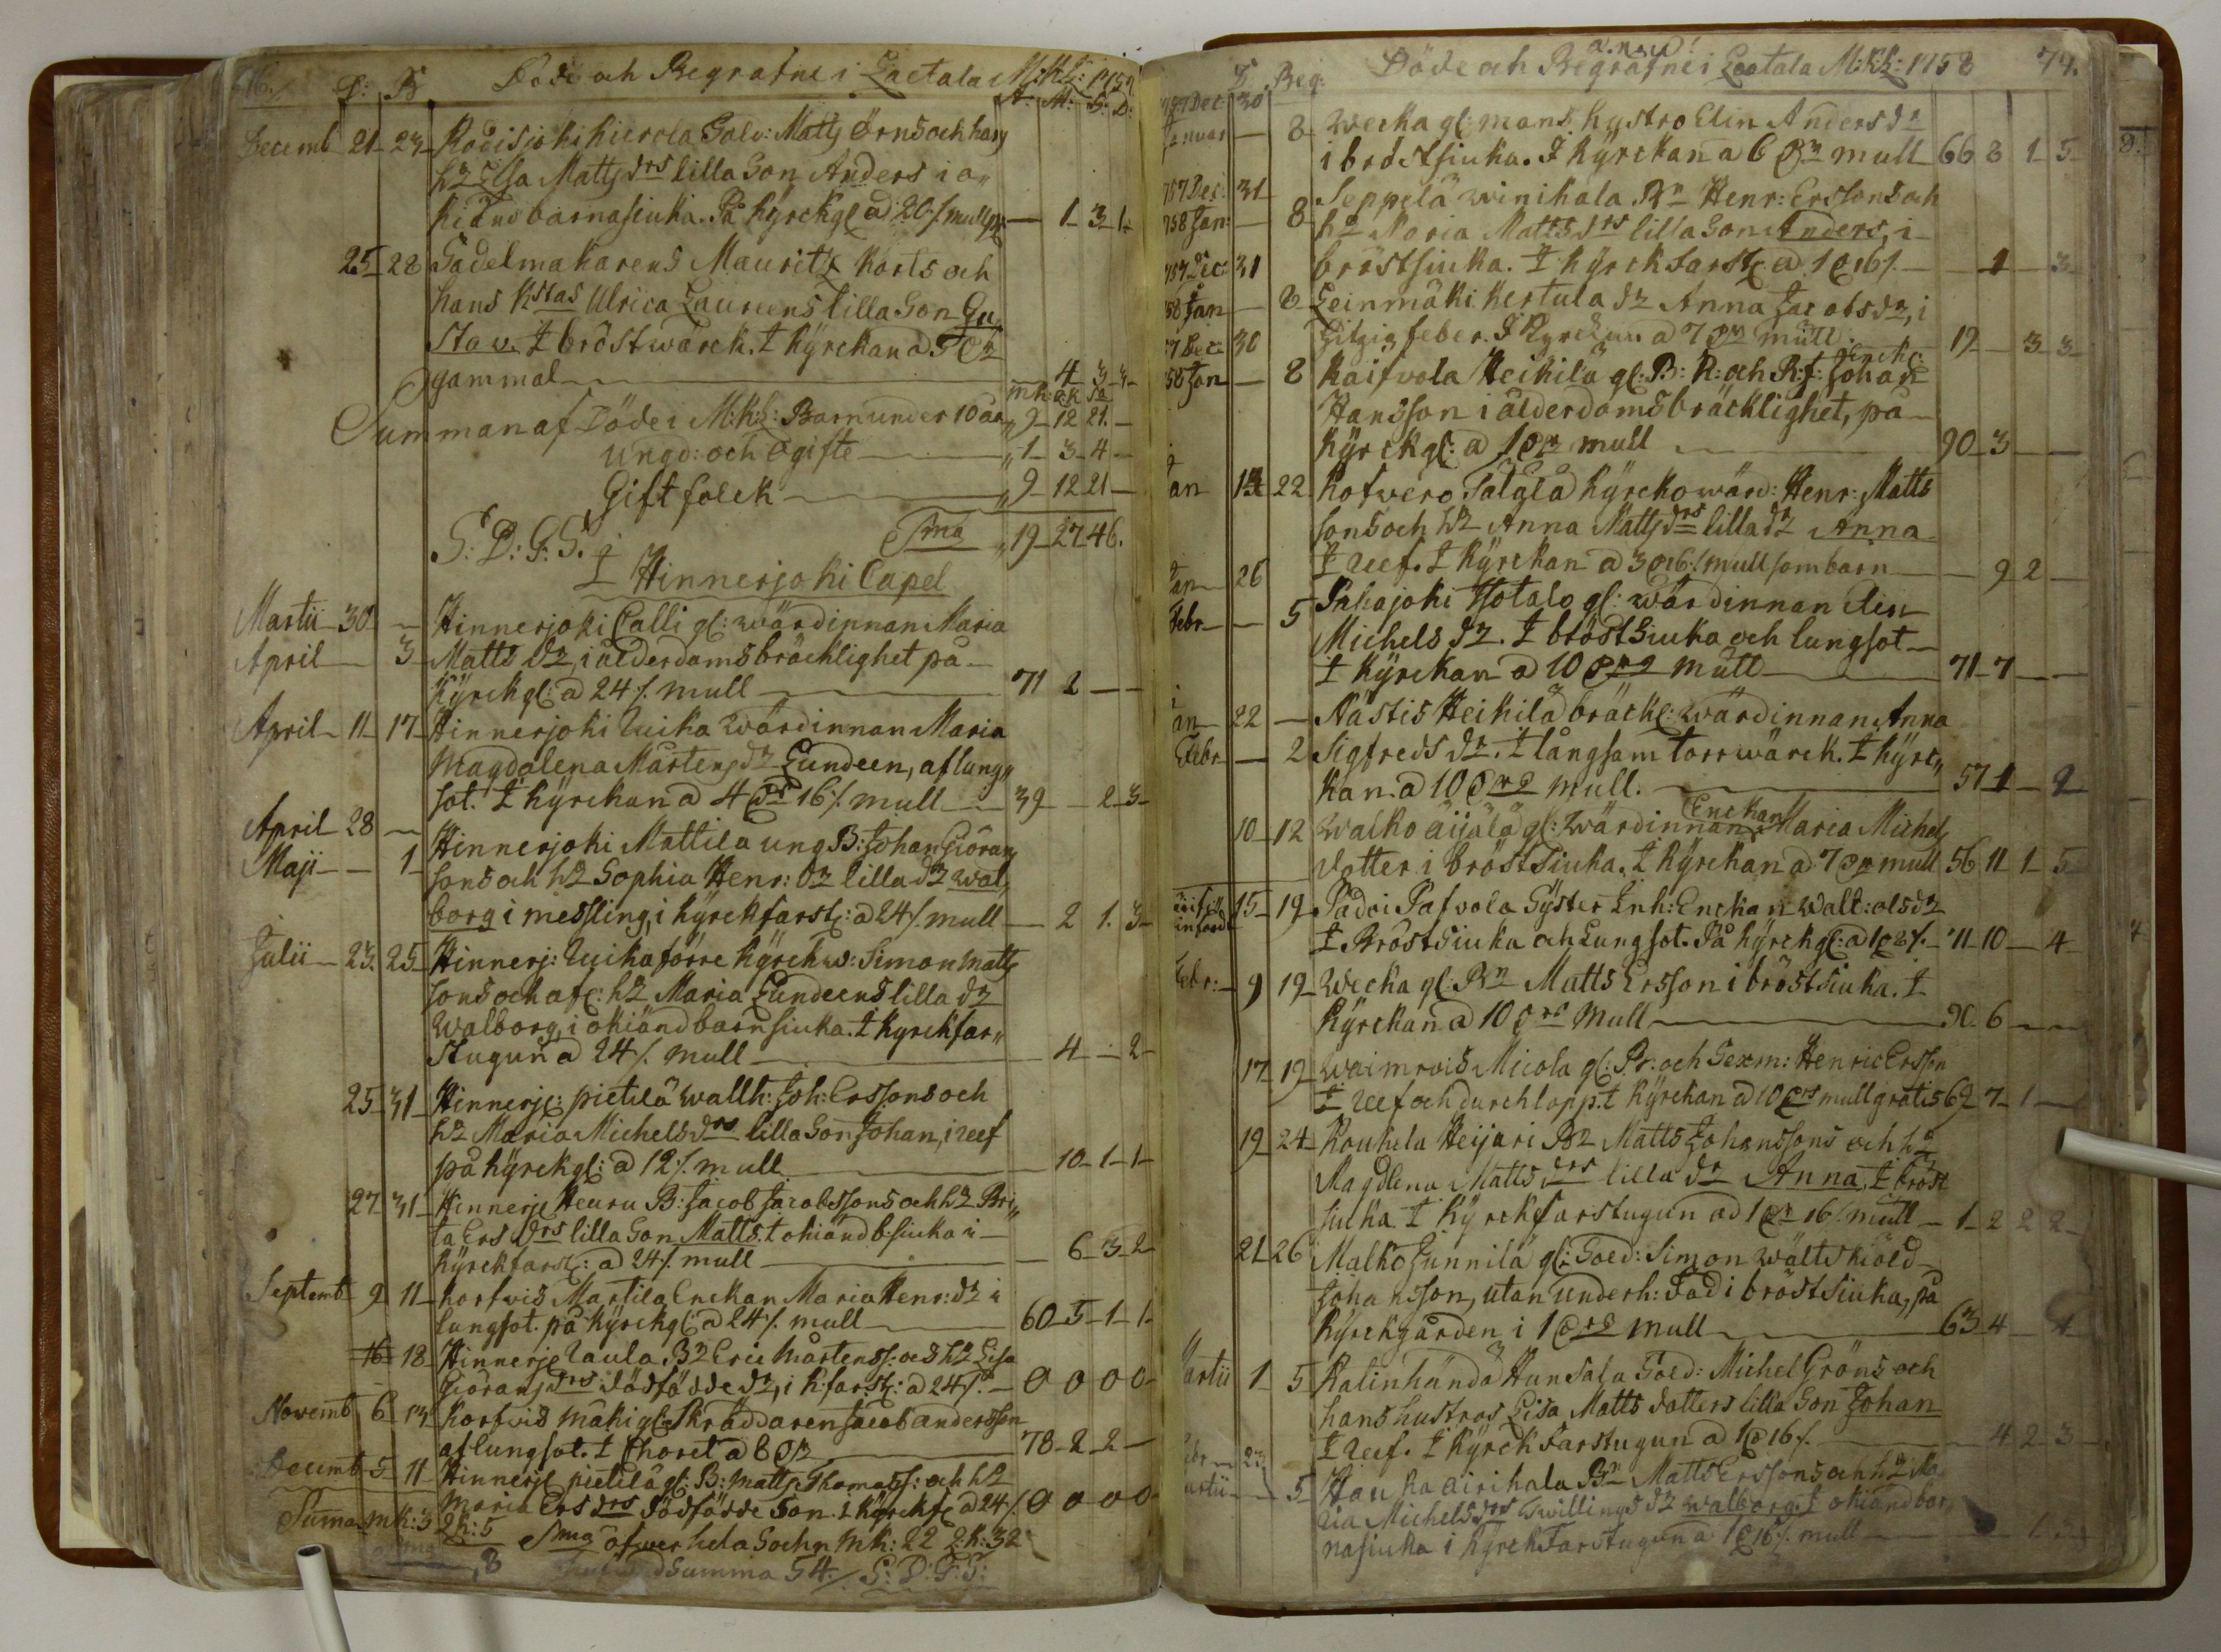 Döde och Begrafne i Eaetala M:K:
D: B
A: M: S: D:
Decemb 21 23 Kadisjoki hierola Sold: Matts Örns och hans
hu Elsa Matts drs lilla Son Anders i o„
kiänd barnasiuka. På kyrckg: a 20/. mull 1 3 1
25 28 Sadelmakarens Mauritz Korts och
hans Ulrica Laureens lilla Son Gu„
stav. I bröstwärck. I Kyrckan a 5
gammal 4 3 3
Summan af Döde i M:K: Barn under 10 åra 9 12 21.
Ungd: och Ogifte 1 3 4
Gift folck 9 12 21
S: D: G: S. Sma 19 27 46.
I Hinnerjoki Capel
Martii 30 Hinnerjoki Calli gl: wärdinnan Maria
April 3 Matts dr, i ålderdoms bräcklighet på
Kyrckg: a 24/. mull 71 2
April 11 17 Hinnerjoki Uuika wärdinnan Maria
Magdalena Mårtens dr Lundeen, af lung„
sot. I kyrckan a 4 16/. mull 39 2 3
April 28 Hinnerjoki Mattila ung B: Johan Göran
Maji 1 sons och hu Sophia Henr: dr lilla dr Wal„
borg i messling, i kyrckfarst: a 24/. mull 2 1. 3
Julii 23. 25 Hinnerj: Uuika förre kyrckw: Simon Matts
sons och afl: hu Maria Lundeens lilla dr
Walborg, i okiänd barnsiuka. I kyrckfar„
stugun a 24/. mull 4 2
25 31 Hinnerj: pietilä wallh: Joh: Erssons och
hu Maria Michels drs lilla Son Johan, i reef
på kyrckg: a 12/. mull 10 1 1
27 31 Hinnerj: Heuru B: Jacob Jacobssons och hu Bri„
ta Ers drs lilla Son Matts. I okiänd b:siuka i
kyrckfarst: a 24/. mull 6 3 2
Septemb 9 11 Korfwis Martila Enckan Maria Henr: dr i
lungsot. på kyrckg: a 24/. mull 60 5 1 1
16 18 Hinnerj: Uaula Br Eric Mårtenss: och hu Lisa
Görans drs dödfödde dr, i k:farst: a 24/. 0 0 0 0
Novemb 6 13 Korfwis Mäki gl: Skräddaren Jacob andersson
af lungsot. I Choret a 8 78 2 2
Decemb 5 11 Hinnerj: pietilä gl: B: Matts Thomass: och hu
Maria Ers drs dödfödde Son. I kyrckf: a 24/. 0 0 0 0
Suma mk: 3 2k: 5 Sma öfwer hela Sochn Mk: 22 2:k: 32
Summa 54./. S: D: G: S:
Döde och Begrafne i Eaetala M:K: 1758 77.
Beg:
Dec: 30
Januar 8 Wecka gl: mans hustro Elin Anders dr
i bröstsiuka. I Kyrckan a 6 mull 66 8 1 5
757 Dec: 31 Seppelä winikala Bn Henr: Erssons och
758 Jan: 8 hu Maria Matts drs lilla Son Anders, i
bröstsiuka. I kyrckfarst: a 1 16/. 1 3
757 Dec: 31 Leinmäki Kertula dr Anna Jacobs dr, i
58 Jan 8 hitzig feber. I Kyrckan a 7 mull 19 3 3
57 Dec: 30 Kaifvola Heikilä gl: B: R: och R:f: Johan
58 Jan 8 Hansson i ålderdoms bräcklighet, på
Kyrckg: a 1 mull 90 3
Jan 22 Kofwero Talala kyrckowärd: Henr: Matts
sons och hu Anna Matts drs lilla dr Anna
I reef. I Kyrckan a 3 16/. mull som barn 9 2
Jan 26
Febr 5 gl: wärdinnan Elin
Michels dr. I bröstsiuka och lungsot
I kyrckan a 10 mull 71 7
Jan 22 Nästis Heikilä bräckl: wärdinnan Anna
Febr 2 Sigfreds dr. I långsam torrwärck. I kyrc„
kan a 10 mull. 57 1 2
10 12 Walko äijälä gl: wärdinnan Enckan Maria Michels
dotter i bröstsiuka. I kyrckan a 7 mull 56 11 1 5
15 19 Padoi Pafvola Syster Inh: Enckan Walb: ols dr
I Bröstsiuka och Lungsot. På kyrckg: a 1 8/. 10 4
Febr: 9 19 Wecka gl: Bn Matts Ersson i bröstsiuka. I
Kyrckan a 10 mull 6
17 19 Waimrois Micola gl: Br: och Sexm: Henric Ersson
I reef och durchlopp. I kyrckan a 10 mull gratis 69 7 1
19 24 Kouhela Heijari Br Matts Johanssons och hu
Magdlena Matts drs lilla dr Anna, I bröst
siuka I Kyrckfarstugun a 1 16/. mull 1 2 2 2
21 26 Malko Junnila gl: Sold: Simon Wältskiöld
Johansson, utan underh: Dödd i bröstsiuka, på
Kyrckgården i 1 mull 63 4 4
Martii 1 5 Kalinhända Hunsala Sold: Michel Gröns och
hans hustros Lisa Matts dotters lilla Son Johan
I reef. I Kyrckfarstugun a 1 16/. 4 2 3
Febr 23
Martii 5 Hauka airikala Bn Matts Erssons och hu Ma„
ria Michels drs Twillings dr Walborg. I okiänd bar„
nasiuka i kyrckfarstugun a 1 16/. mull 1 3